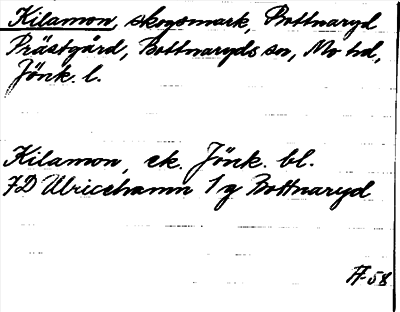 Kilamon, skogsmark, Bottnaryd
Prästgård, Bottnaryds sn, Mo hd,
Jönk. l.
Kilamon, ek. Jönk. bl.
7D Ulricehamn 1 g Bottnaryd
AF-58